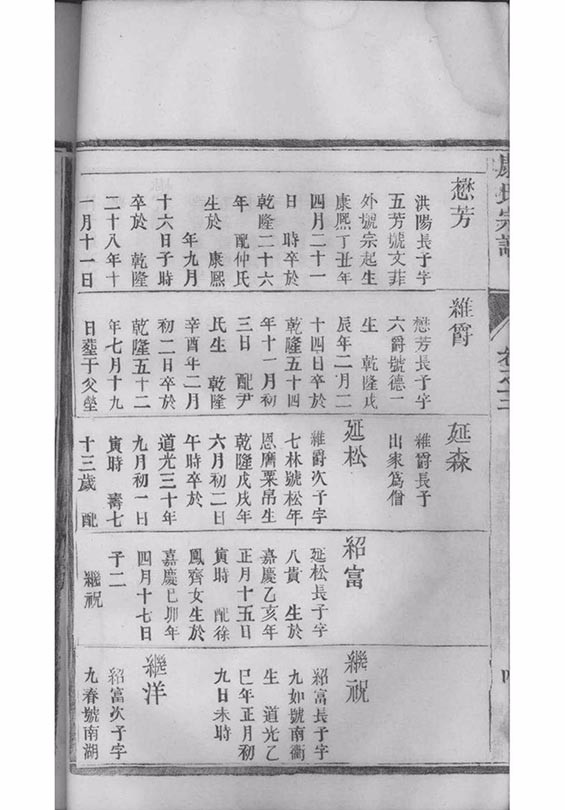 氏宗譜
卷之三
懋芳
洪陽長子字
五芳號文菲
外號宗起生
康熙丁丑年
四月二十一
日 時卒於
乾隆二十六
年 配仲氏
生於 康熙
年九月
十六日子時
卒於 乾隆
二十八年十
一月十一日
維爵
懋芳長子字
六爵號德一
生 乾隆戊
辰年二月二
十四日卒於
乾隆五十四
年十一月初
三日 配尹
氏生 乾隆
辛酉年二月
初二日卒於
乾隆五十二
年七月十九
日塟于父塋
延森
維爵長子
出家爲僧
延松
維爵次子字
七林號松年
恩賡粟帛生
乾隆戊戌年
六月初二日
午時卒於
道光三十年
九月初一日
寅時 壽七
十三歲 配
紹富
延松長子字
八貴 生於
嘉慶乙亥年
正月十五日
寅時 配徐
鳳齊女生於
嘉慶己卯年
四月十七日
子二
繼祝
繼祝
紹富長子字
九如號南衢
生 道光乙
巳年正月初
九日未時
繼洋
紹富次子字
九春號南湖